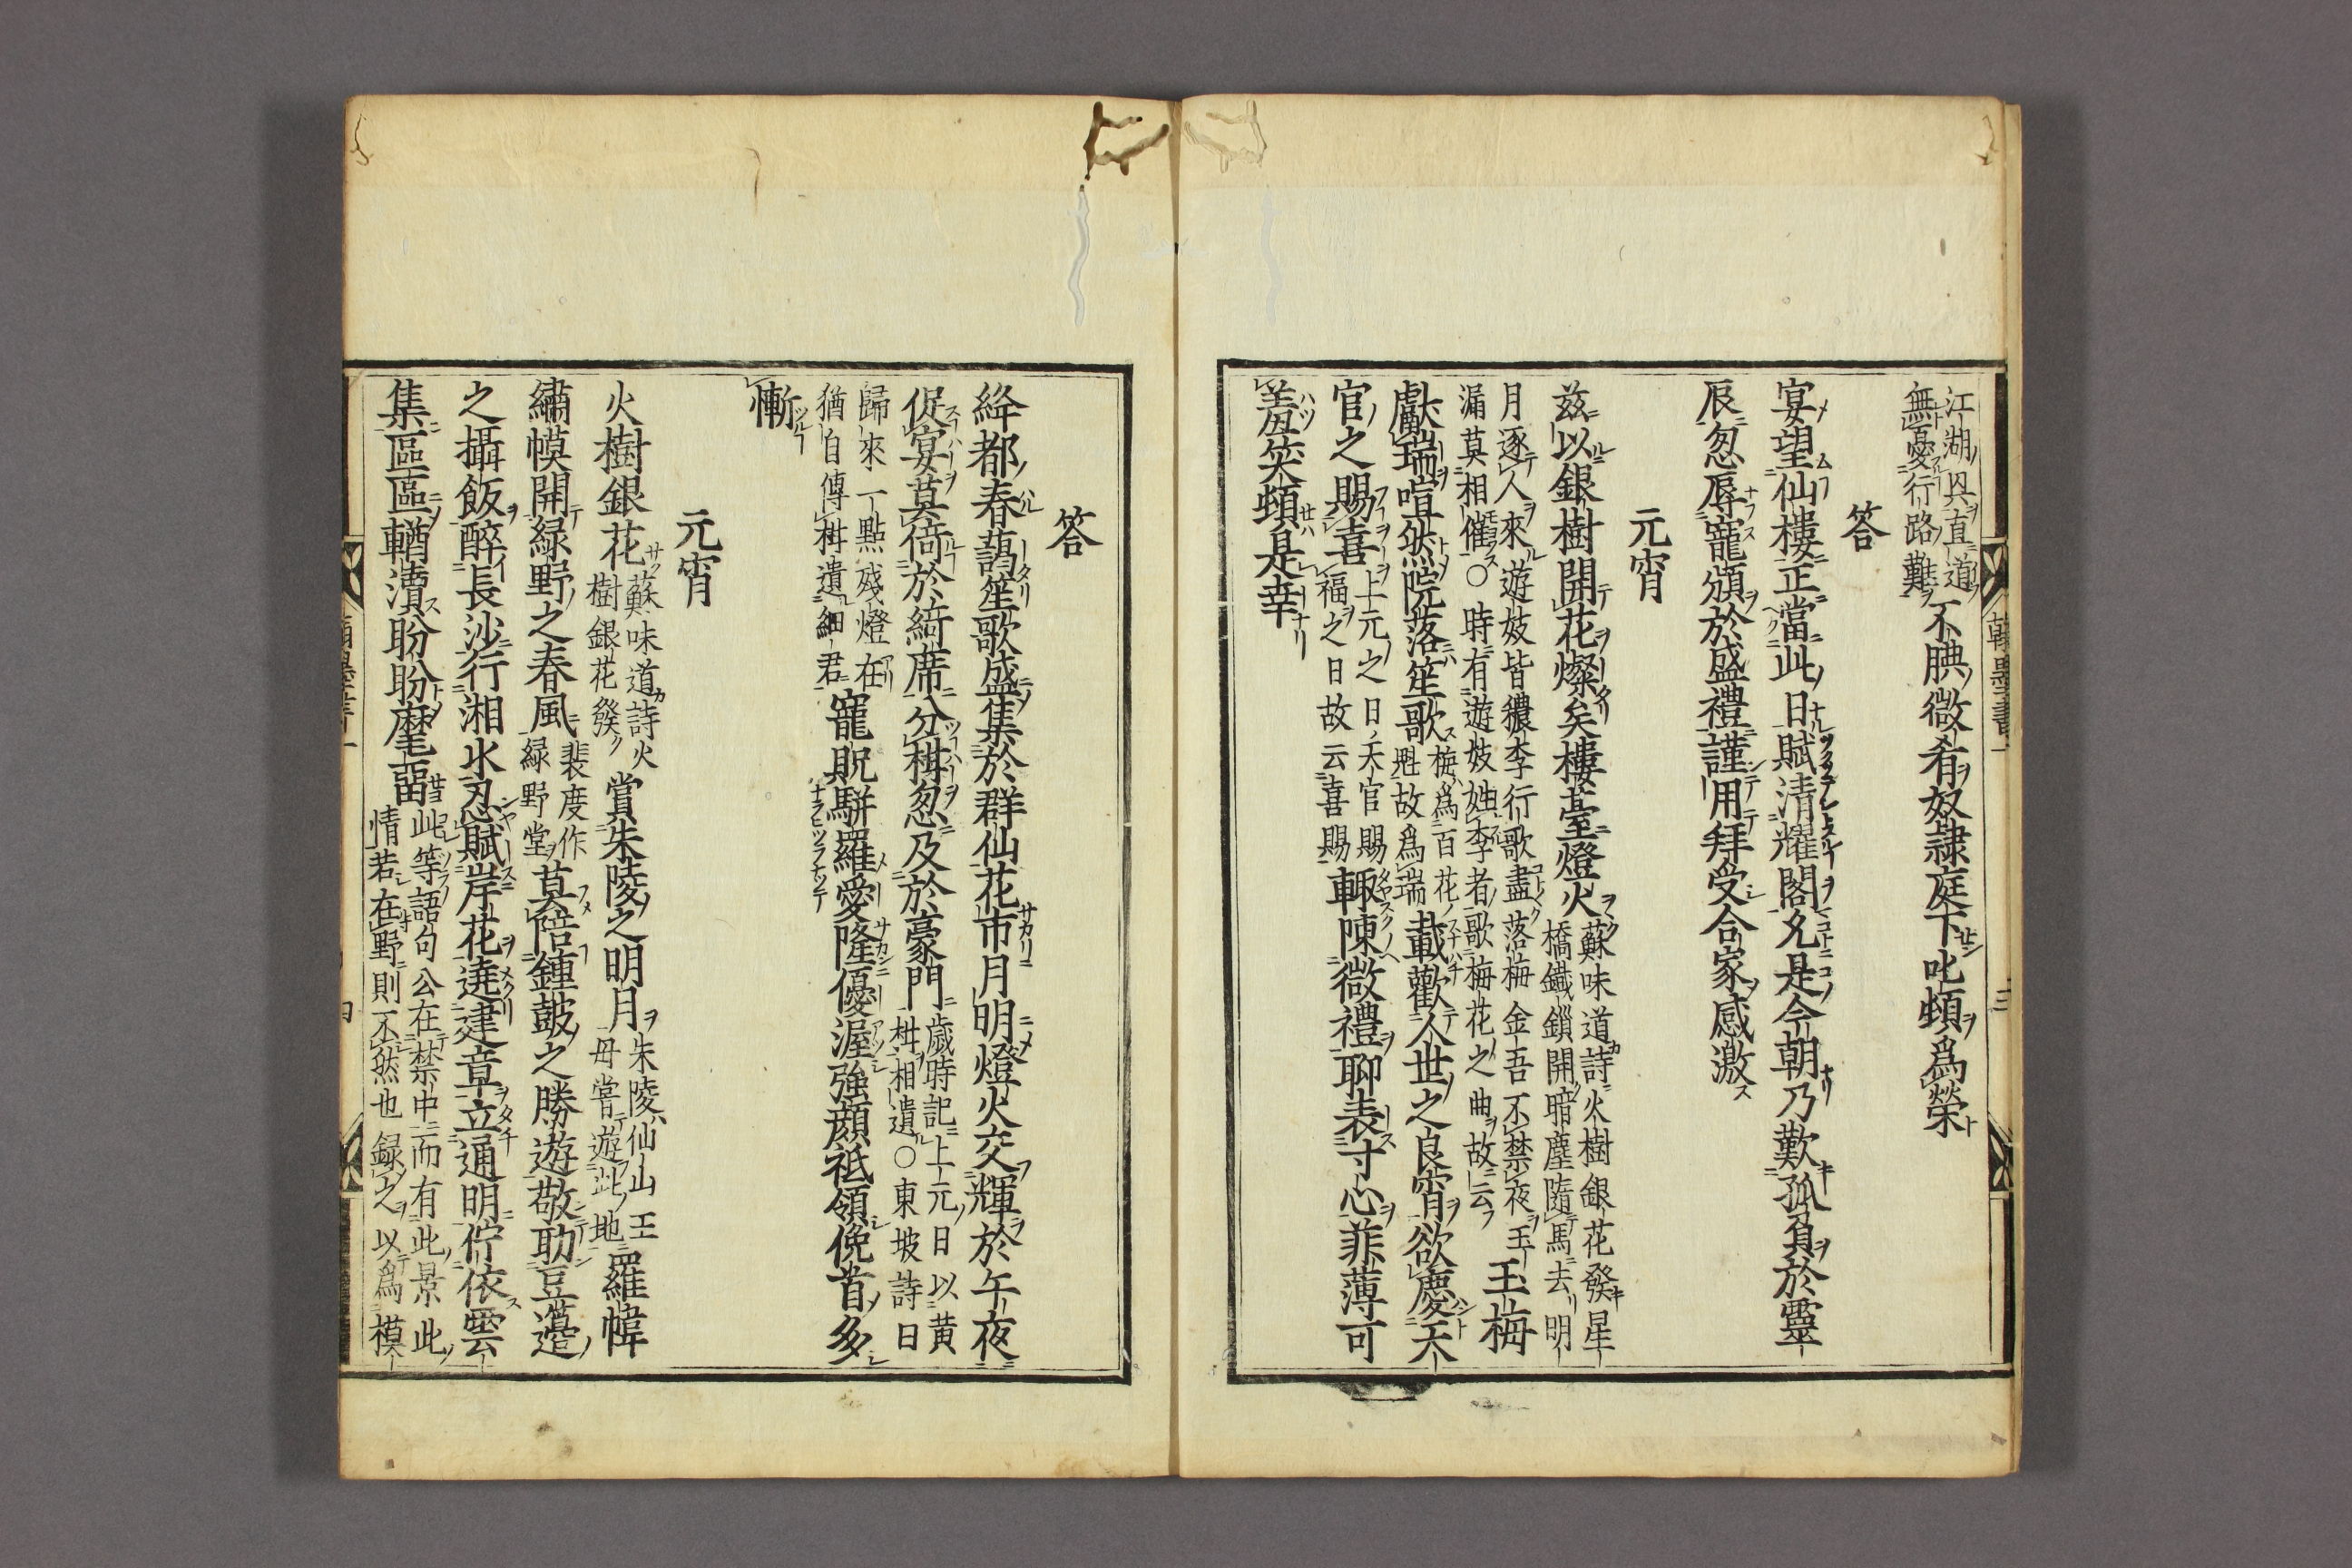 江湖具直道
無憂行路難不腆微肴奴隷庭下叱頓爲榮
答
宴望仙樓正當此日賦清耀閣允是今朝乃歎孤負於靈
辰忽辱寵頒於盛禮謹用拜受合家感激
元宵
茲以銀樹開花燦矣樓臺燈火蘇味道詩火樹銀花發星
橋鐵鎖開暗塵隨馬去明
月逐人來遊妓皆穠李行歌盡落梅金吾不禁夜玉
漏莫相催○時有遊妓姓李者歌梅花之曲故云玉梅
獻瑞喧然院落笙歌梅爲百花
魁故爲瑞載歡人世之良宵欲慶天
官之賜喜上元之日天官賜
福之日故云喜賜輙陳微禮聊表寸心菲薄可
羞笑頓是幸
答
絳都春藹笙歌盛集於群仙花市月明燈火交輝於午夜
促宴莫倚於綺席分柑忽及於豪門歲時記上元日以黄
柑相遺○東坡詩曰
歸來一點殘燈在
猶自傳柑遺細君寵貺駢羅愛隆優渥強顔祇領俛首多
慚
元宵
火樹銀花蘇味道詩火
樹銀花發賞朱陵之明月朱陵仙山王
母嘗遊此地羅幃
繡幙開緑野之春風裴度作
緑野堂莫陪鍾皷之勝遊敬助豆籩
之攝飯醉長沙行湘水忍賦岸花遶建章立通明佇依雲
集區區輶瀆盼盼麾畱此等語句公在禁中而有此景此
情若在野則不然也録之以爲模